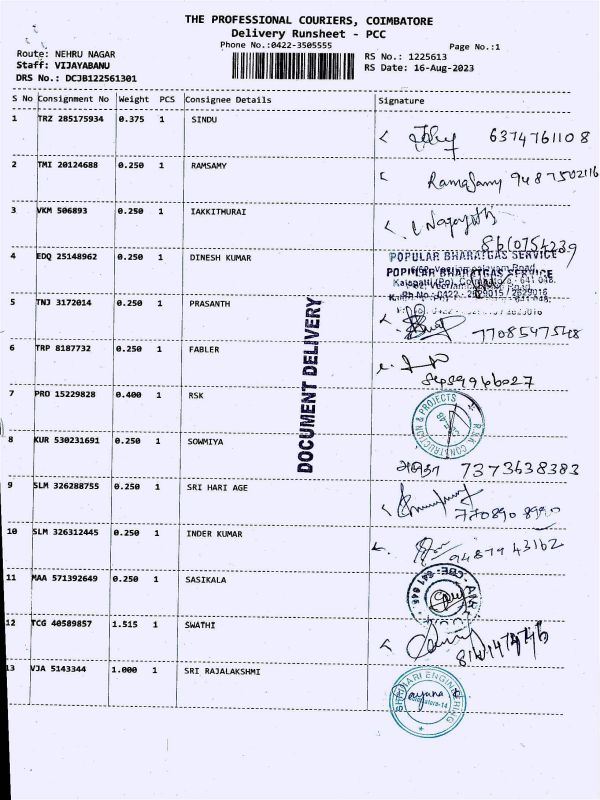 THE PROFESSIONAL COURIERS, COIMBATORE
Delivery Runsheet - PCC
Phone No.:0422-3505555
Page No.:1
Route: NEHRU NAGAR
Staff: VIJAYABANU
DRS No.: DCJB122561301
RS No.: 1225613
RS Date: 16-Aug-2023
S No Consignment No Weight PCS Consignee Details Signature
1 TRZ 285175934 0.375 1 SINDU 6374761108
2 TMI 20124688 0.250 1 RAMSAMY Ramasamy 9487502116
3 VKM 506893 0.250 1 IAKKITHURAI
8610754239
4 EDQ 25148962 0.250 1 DINESH KUMAR POPULAR BHARATGAS SERVICE
POPULAR BHARATGAS SERVICE
5 TNJ 3172014 0.250 1 PRASANTH
7708547548
6 TRP 8187732 0.250 1 FABLER
8489966027
7 PRO 15229828 0.400 1 RSK R.S.K CONSTRUCTION & PROJECTS
DOCUMENT DELIVERY
8 KUR 530231691 0.250 1 SOWMIYA
7373638383
9 SLM 326288755 0.250 1 SRI HARI AGE
770890 8990
10 SLM 326312445 0.250 1 INDER KUMAR
94879 43162
11 MAA 571392649 0.250 1 SASIKALA
12 TCG 40589857 1.515 1 SWATHI
13 VJA 5143344 1.000 1 SRI RAJALAKSHMI